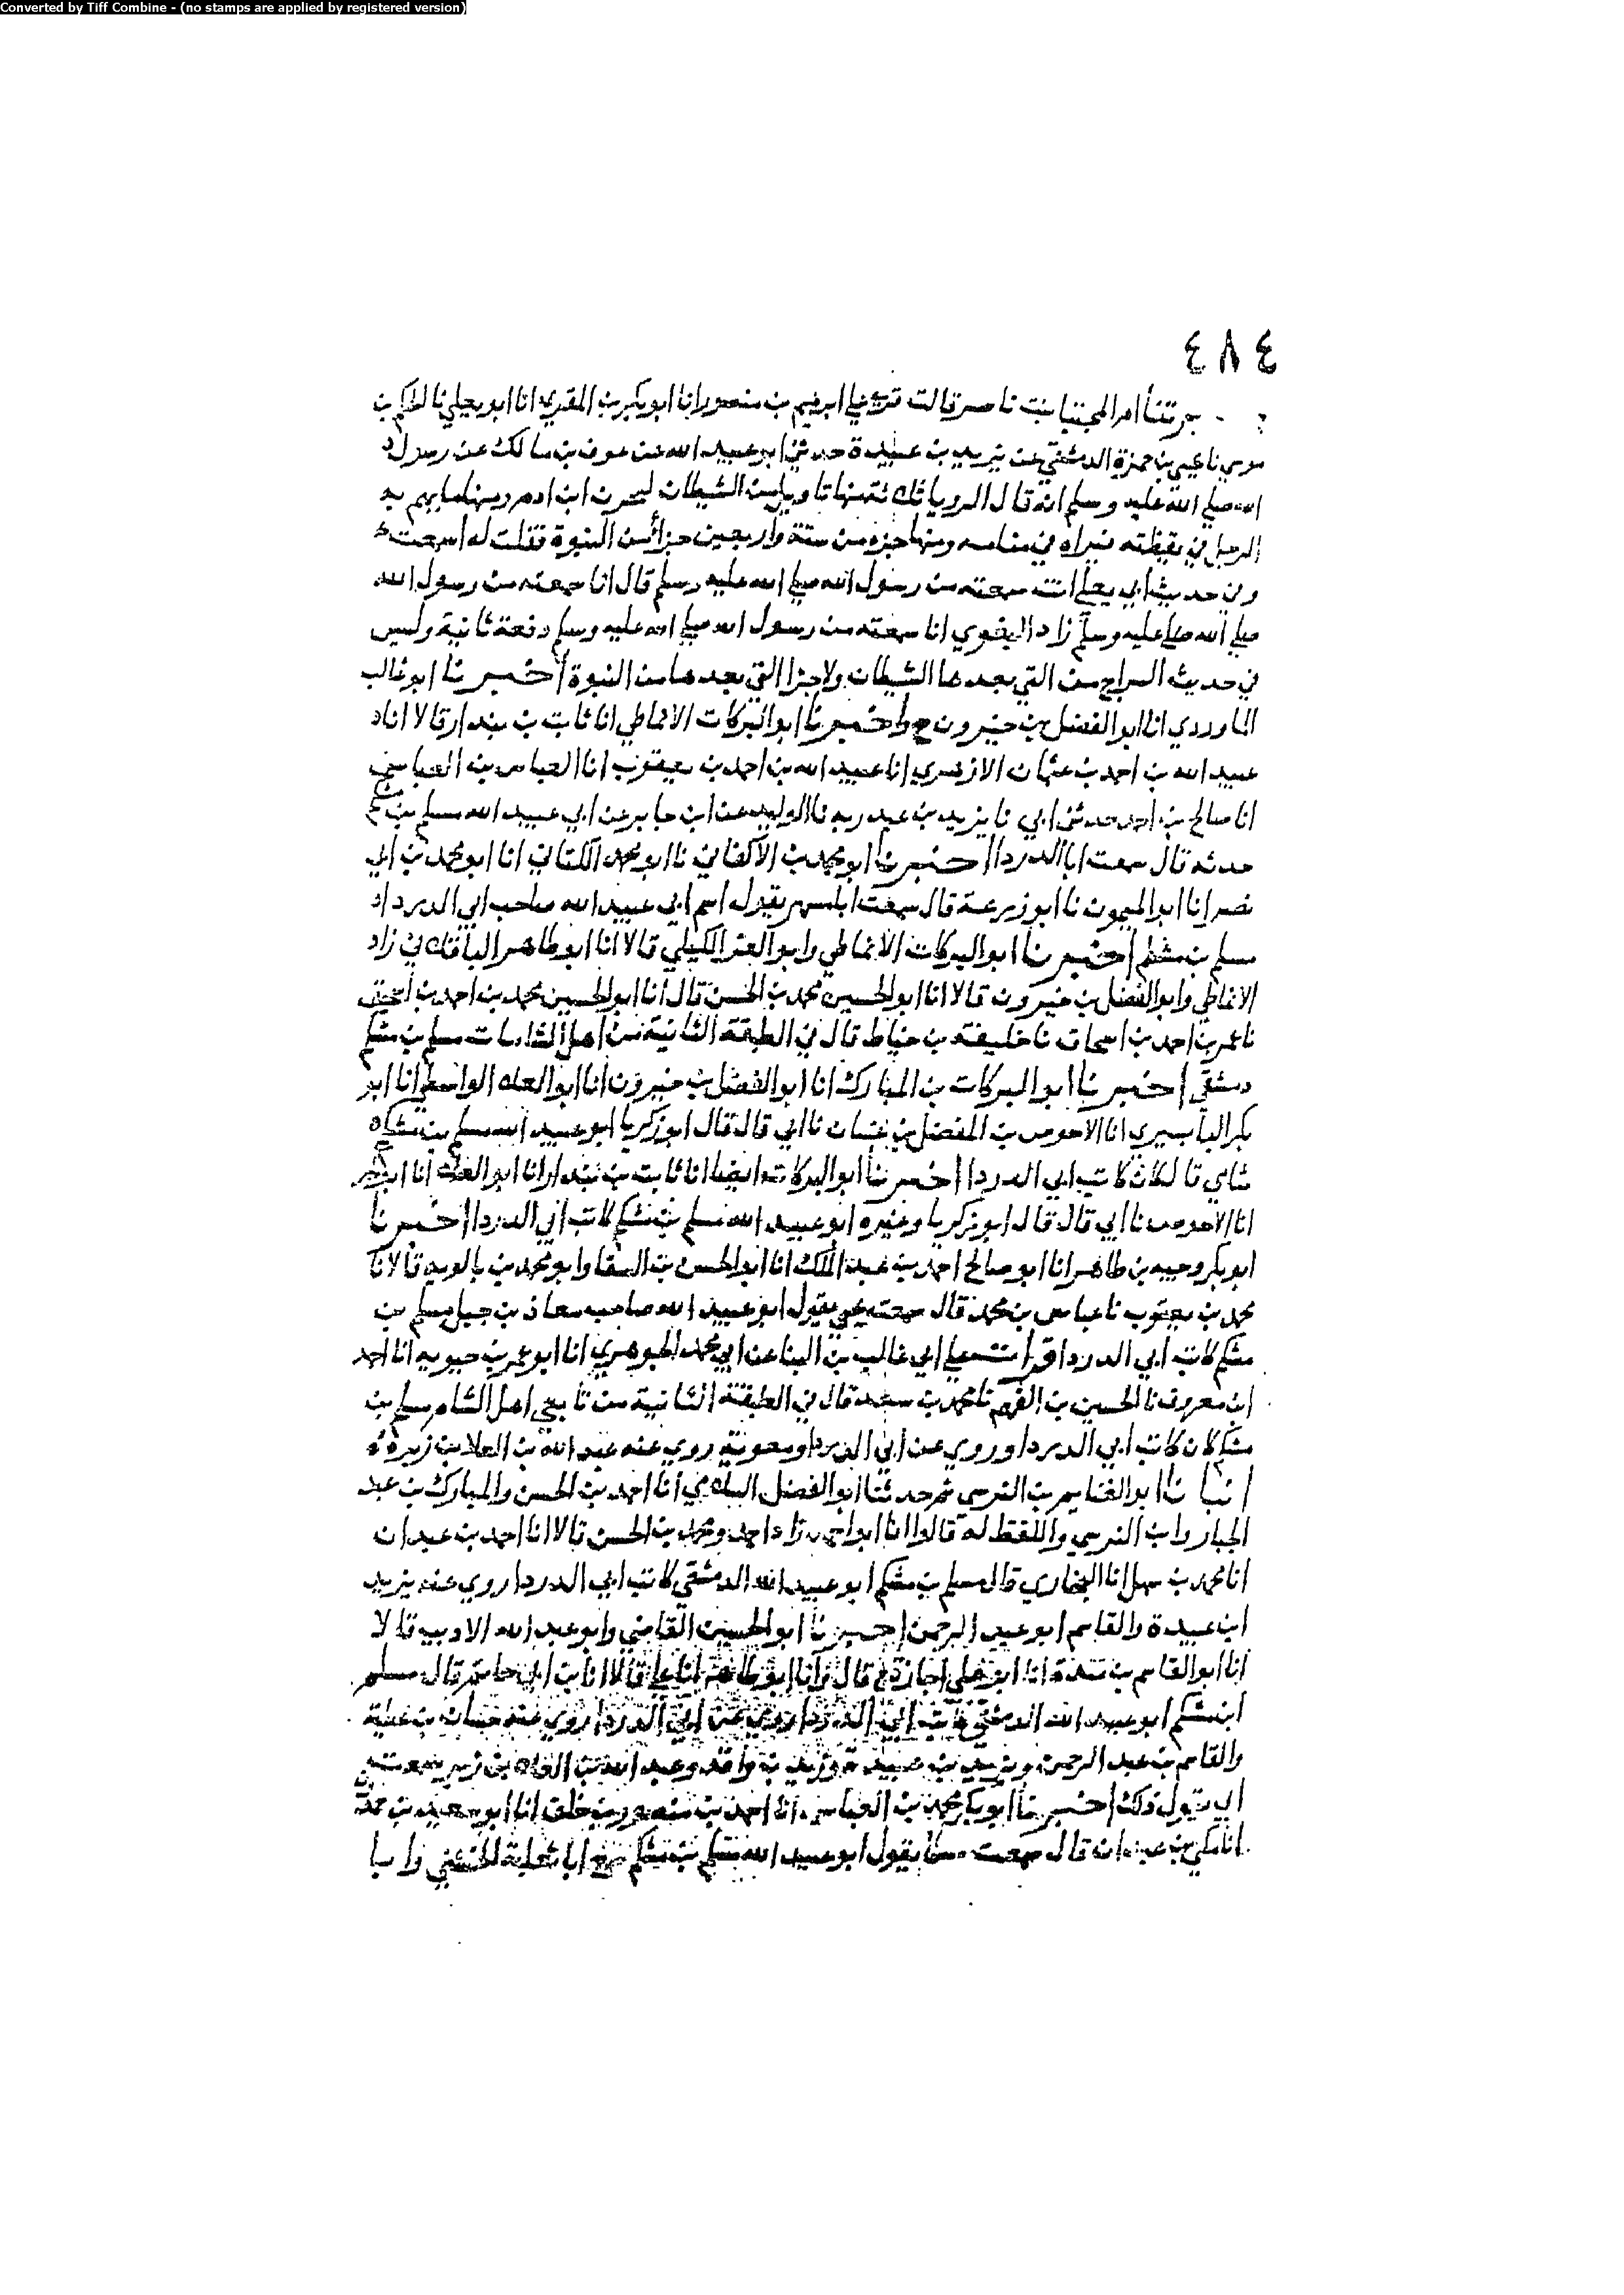 Converted by Tiff Combine - (no stamps are applied by registered version)
٤٨٤
أم المجتبا بنت ناصر قالت قرئ على ابرهيم بن منصور انا ابو بكر بن المقري انا ابو يعلي نا الحكم بن
موسي نا يحيي بن حمزة الدمشقي عن يزيد بن عبيدة حدثني ابو عبيد الله عن عوف بن مالك عن رسول
الله صلي الله عليه وسلم انه قال الرويا ثلث منها تاويل من الشيطان ليحزن ابن ادم ومنها ما يهم به
الرجل في يقظته فيراه في منامه ومنها جزء من ستة واربعين جزأ من النبوة فقلت له اسمعت
وفي حديث ابي يعلي انت سمعته من رسول الله صلي الله عليه وسلم قال انا سمعته من رسول الله
صلي الله عليه وسلم زاد البغوي انا سمعته من رسول الله صلي الله عليه وسلم دفعة ثانية وليس
في حديث السراج من التي بعدها الشيطان ولا جزا التي بعدها من النبوة اخبرنا ابو غالب
الماوردي انا ابو الفضل بن خيرون ح واخبرنا ابو البركات الانماطي انا ثابت بن بندار قالا انا
عبيد الله بن احمد بن عثمان الازهري انا عبيد الله بن احمد بن يعقوب انا العباس بن العباس
انا صالح بن احمد حدثني ابي نا يزيد بن عبد ربه نا الوليد عن ابن جابر عن ابي عبيد الله مسلم بن مشكم
حدثه قال سمعت ابا الدردا اخبرنا ابو محمد بن الاكفاني نا ابو محمد الكتاني انا ابو محمد بن ابي
نصر انا ابو الميمون نا ابو زرعة قال سمعت ابا مسهر يقول اسم ابي عبيد الله صاحب ابي الدردا
مسلم بن مشكم اخبرنا ابو البركات الانماطي وابو العز الكيلي قالا انا ابو طاهر الباقلاني زاد
الانماطي وابو الفضل بن خيرون قالا انا ابو الحسين محمد بن الحسن قال انا ابو الحسين محمد بن احمد بن اسحق
نا عمر بن احمد بن اسحاق نا خليفة بن خياط قال في الطبقة الثانية من اهل الشامات مسلم بن مشكم
دمشقي اخبرنا ابو البركات بن المبارك انا ابو الفضل بن خيرون انا ابو العلاء الواسطي انا ابو
بكر البابسيري انا الاحوص بن المفضل بن غسان نا ابي قال قال ابو زكريا ابو عبيد الله مسلم بن مشكم
شامي قال كان كاتب ابي الدردا اخبرنا ابو البركات ايضا انا ثابت بن بندار انا ابو العلاء انا ابو بكر
انا الاحوص نا ابي قال قال ابو زكريا وغيره ابو عبيد الله مسلم بن مشكم كاتب ابي الدردا اخبرنا
ابو بكر وجيه بن طاهر انا ابو صالح احمد بن عبد الملك انا ابو الحسن بن السقا وابو محمد بن بالويه قالا نا
محمد بن يعقوب نا عباس بن محمد قال سمعت يحيي يقول ابو عبيد الله صاحب معاذ بن جبل مسلم بن
مشكم كاتب ابي الدردا قرأت علي ابي غالب بن البنا عن ابي محمد الجوهري انا ابو عمر بن حيويه انا احمد
ابن معروف نا الحسين بن الفهم نا محمد بن سعد قال في الطبقة الثانية من تابعي اهل الشام مسلم بن
مشكم كان كاتب ابي الدردا وروي عن ابي الدردا ومعوية روي عنه عبد الله بن العلا بن زبر
انبانا ابو الغنايم بن النرسي ثم حدثنا ابو الفضل السلامي انا احمد بن الحسن والمبارك بن عبد
الجبار وابن النرسي واللفظ له قالوا انا ابو احمد زاد احمد ومحمد بن الحسن قالا انا احمد بن عبدان
انا محمد بن سهل انا البخاري قال مسلم بن مشكم ابو عبيد الله الدمشقي كاتب ابي الدردا روي عنه يزيد
ابن عبيدة والقاسم ابو عبد الرحمن اخبرنا ابو الحسين القاضي وابو عبد الله الاديب قالا
انا ابو القاسم بن مندة انا ابو علي اجازة ح قال وانا ابو طاهر انا علي قالا انا ابن ابي حاتم قال مسلم
ابن مشكم ابو عبيد الله الدمشقي كاتب ابي الدردا روي عن ابي الدردا روي عنه حسان بن عطية
والقاسم بن عبد الرحمن ويزيد بن عبيدة وزيد بن واقد وعبد الله بن العلاء بن زبر سمعت
ابي يقول ذلك اخبرنا ابو بكر محمد بن العباس انا احمد بن منصور بن خلف انا ابو سعيد بن حمدون
انا مكي بن عبدان قال سمعت مسلما يقول ابو عبيد الله مسلم بن مشكم سمع ابا ثعلبة الخشني وابا